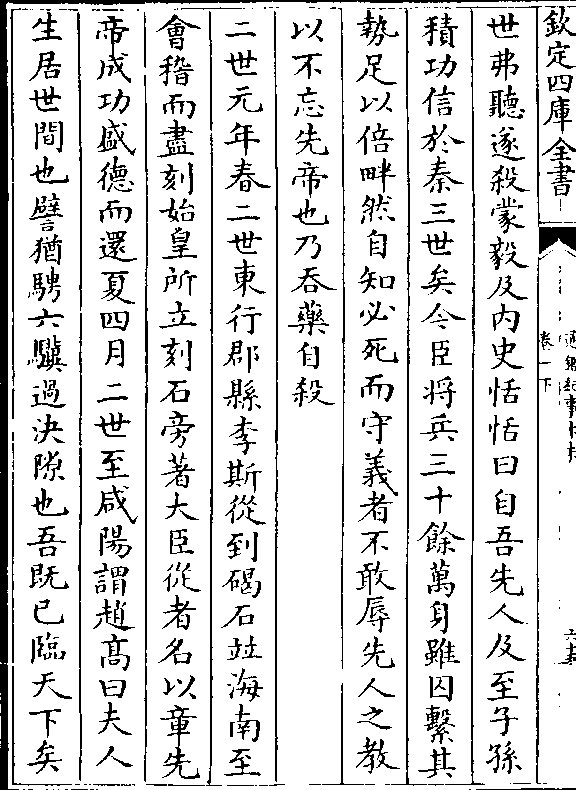 欽定四庫全書
卷一下
世弗聽遂殺蒙毅及内史恬恬曰自吾先人及至子孫
積功信於秦三世矣今臣將兵三十餘萬身雖囚繫其
勢足以倍畔然自知必死而守義者不敢辱先人之教
以不忘先帝也乃吞藥自殺
二世元年春二世東行郡縣李斯從到碣石並海南至
會稽而盡刻始皇所立刻石旁著大臣從者名以章先
帝成功盛德而還夏四月二世至咸陽謂趙髙曰夫人
生居世間也譬猶騁六驥過決隙也吾既已臨天下矣